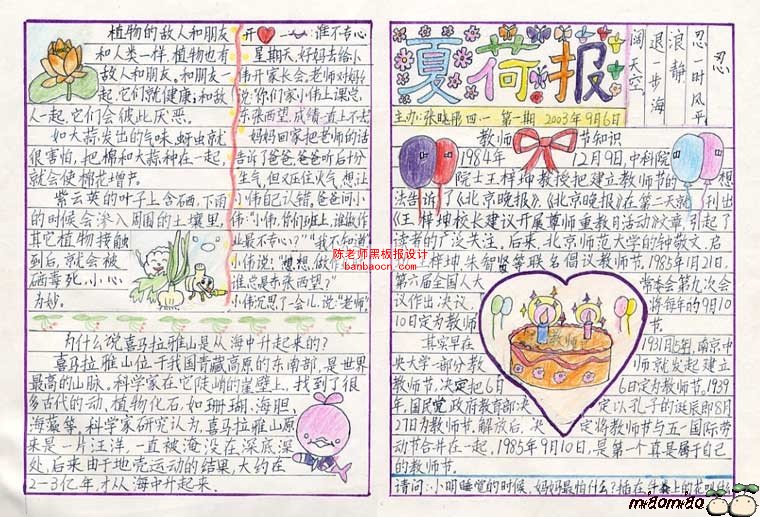 植物的敌人和朋友
和人类一样,植物也有
敌人和朋友。和朋友一
起,它们就健康;和敌
人一起,它们会彼此厌恶。
如大蒜发出的气味,蚜虫就
很害怕。把棉和大蒜种在一起,
就会使棉花增产。
紫云英的叶子上含硒,下雨
的时候会渗入周围的土壤里,
其它植物接触
到后,就会被
毒死,小心
为妙。
开心一 谁不专心
星期天,好妈去给小
伟开家长会,老师对妈妈
说:"你们家小伟上课总
东张西望,成绩一直上不去
妈妈回家把老师的话
告诉了爸爸,爸爸听后十分
生气,但又压住火气,想让
小伟自己认错,爸爸问小
伟:"小伟,你们班上,谁做作
业最不专心?""我不知道"
小伟说:"想想,做作
谁总是东张西望?"
小伟沉思了一会儿,说:"老师"。
陈老师黑板报设计
banbaocn.com
为什么说喜马拉雅山是从海中升起来的?
喜马拉雅山位于我国青藏高原的东南部,是世界
最高的山脉。科学家在它陡峭的崖壁上,找到了很
多古代的动、植物化石,如珊瑚、海胆、
海藻等。科学家研究认为,喜马拉雅山原
来是一片汪洋,一直被淹没在深底深
处,后来由于地壳运动的结果,大约在
2-3亿年,才从海中升起来.
夏荷报
忍
忍一时风平
浪静
退一步海
阔天空
主办:张晓 四、一 第一期 2003年9月6日
教师节知识
1984年12月9日,中科院
院士王梓坤教授把建立教师节的想
法告诉了《北京晚报》,《北京晚报》在第二天就刊出
《王梓坤校长建议开展尊师重教月活动》文章,引起了
读者的广泛关注。后来,北京师范大学的钟敬文、启
王梓坤、朱智贤等联名倡议教师节。1985年1月21日,
第六届全国人大常委会第九次会
议作出决议,将每年的9月10
10日定为教师
其实早在1931年,南京中
央大学一部分教师就发起建立
教师节,决定把6月6日定为教师节。1939
年,国民党政府教育部决定以孔子的诞辰即8月
27日为教师节。解放后,决定将教师与五一国际劳
动节合并在一起,1985年9月10日,是第一个真是属于自己
的教师节。
请问:小明睡觉的时候,妈妈最怕什么?
miaomiao